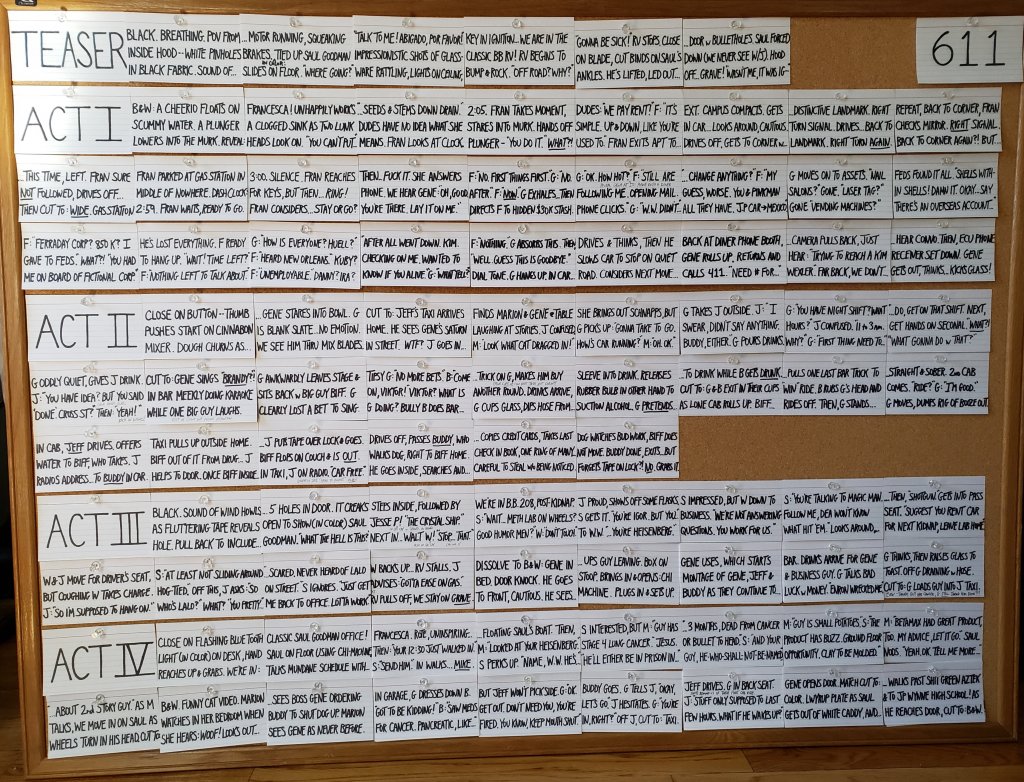 TEASER
BLACK. BREATHING. POV FROM...
INSIDE HOOD -- WHITE PINHOLES
IN BLACK FABRIC. SOUND OF...
MOTOR RUNNING, SQUEAKING
BRAKES, TIED UP SAUL GOODMAN
IN COLOR
SLIDES ON FLOOR. "WHERE GOING?"
"TALK TO ME! ABIGADO, POR FAVOR!
IMPRESSIONISTIC SHOTS OF GLASS-
WARE RATTLING, LIGHTS ON CEILING,
KEY IN IGNITION... WE ARE IN THE
CLASSIC BB RV! RV BEGINS TO
BUMP & ROCK. "OFF ROAD? WHY?"
GONNA BE SICK! RV STOPS CLOSE
ON BLADE, CUT BINDS ON SAUL'S
ANKLES. HE'S LIFTED, LED OUT...
...DOOR W BULLETHOLES. SAUL FORCED
DOWN (WE NEVER SEE W/J). HOOD
OFF. GRAVE! "WASN'T ME, IT WAS IG-"
611
ACT I
B&W. A CHEERIO FLOATS ON
SCUMMY WATER. A PLUNGER
LOWERS INTO THE MURK. REVEAL:
FRANCESCA! UNHAPPILY WORKS
A CLOGGED SINK AS TWO LUNK
HEADS LOOK ON. "YOU CAN'T PUT..
..SEEDS & STEMS DOWN DRAIN."
DUDES HAVE NO IDEA WHAT SHE
MEANS. FRAN LOOKS AT CLOCK.
2:05. FRAN TAKES MOMENT,
STARES INTO MURK. HANDS OFF
PLUNGER - "YOU DO IT." "WHAT?!
DUDES: "WE PAY RENT!" F: "IT'S
SIMPLE. UP & DOWN, LIKE YOU'RE
USED TO." FRAN EXITS APT TO...
EXT. CAMPUS COMPACTS. GETS
IN CAR... LOOKS AROUND, CAUTIOUS.
DRIVES OFF, GETS TO CORNER W...
...DISTINCTIVE LANDMARK. RIGHT
TURN SIGNAL. DRIVES... BACK TO
LANDMARK. RIGHT TURN AGAIN..
REPEAT, BACK TO CORNER, FRAN
CHECKS MIRROR. RIGHT SIGNAL.
BACK TO CORNER AGAIN?! BUT..
...THIS TIME, LEFT. FRAN SURE
NOT FOLLOWED, DRIVES OFF...
THEN CUT TO: WIDE. GAS STATION
FRAN PARKED AT GAS STATION IN
MIDDLE OF NOWHERE. DASH CLOCK
2:59. FRAN WAITS, READY TO GO.
3:00. SILENCE. FRAN REACHES
FOR KEYS, BUT THEN... RING!
FRAN CONSIDERS... STAY OR GO?
THEN... FUCK IT. SHE ANSWERS
PHONE. WE HEAR GENE: OH, GOOD,
YOU'RE THERE. LAY IT ON ME."
F: NO. FIRST THINGS FIRST. G: NO.
AFTER." F: NOW. G EXHALES, THEN
DIRECTS F TO HIDDEN $30K STASH.
G: OK. HOW HOT? F: STILL ARE
FOLLOWING ME. OPENING MAIL.
PHONE CLICKS." G: "W.W. DIDN'T..
...CHANGE ANYTHING? F: "MY
GUESS, WORSE. YOU & PINKMAN
ALL THEY HAVE. J.P CAR→MEXICO
G MOVES ON TO ASSETS. "NAIL
SALONS?" GONE. "LASER TAG?"
GONE. "VENDING MACHINES?"
FEDS FOUND IT ALL. "SHELLS WITH-
IN SHELLS! DAMN IT. OKAY... SAY
THERE'S AN OVERSEAS ACCOUNT.."
F: "FERRADAY CORP? 850 K? I
GAVE TO FEDS." "WHAT?!" "YOU HAD
ME ON BOARD OF FICTIONAL CORP."
HE'S LOST EVERYTHING. F READY
TO HANG UP. "WAIT! TIME LEFT?"
F: "NOTHING LEFT TO TALK ABOUT
G: "HOW IS EVERYONE? HUELL?"
F: HEARD NEW ORLEANS." KUBY?
F: "UNEMPLOYABLE." DANNY? IRA?
"AFTER ALL WENT DOWN.. KIM.
CHECKING ON ME. WANTED TO
KNOW IF YOU ALIVE. G: "WHAT TELL?
F: "NOTHING". G ABSORBS THIS. THEN
"WELL.. GUESS THIS IS GOODBYE."
DIAL TONE. G HANGS UP, IN CAR...
DRIVES & THINKS, THEN HE
SLOWS CAR TO STOP ON QUIET
ROAD. CONSIDERS NEXT MOVE...
BACK AT DINER PHONE BOOTH,
GENE ROLLS UP, RETURNS AND
CALLS 411. "NEED # FOR...
...CAMERA PULLS BACK, JUST
HEAR: "TRYING TO REACH A KIM
WEXLER. FAR BACK, WE DON'T..
...HEAR CONVO. THEN, ECU PHONE
RECEIVER SET DOWN. GENE
GETS OUT, THINKS... KICKS GLASS!
ACT II
CLOSE ON BUTTON -- THUMB
PUSHES START ON CINNABON
MIXER. DOUGH CHURNS AS...
...GENE STARES INTO BOWL. G
IS BLANK SLATE. NO EMOTION.
WE SEE HIM THRU MIX BLADES.
CUT TO: JEFF'S TAXI ARRIVES
HOME. HE SEES GENE'S SATURN
IN STREET. WTF? J GOES IN...
FINDS MARION & GENE @ TABLE
LAUGHING AT STORIES. J CONFUSED.
M: LOOK WHAT CAT DRAGGED IN!
SHE BRINGS OUT SCHNAPPS, BUT
G PICKS UP: GONNA TAKE TO GO.
HOW'S CAR RUNNING? M: OH. OK.
G TAKES J OUTSIDE. J: "I
SWEAR, DIDN'T SAY ANYTHING.
BUDDY, EITHER. G POURS DRINKS.
G: "YOU HAVE NIGHT SHIFT? "WANT
HOURS?" J CONFUSED. "11 to 3AM.
WHY?" G: FIRST THING NEED TO..
...DO, GET ON THAT SHIFT. NEXT,
GET HANDS ON SECONAL." WHAT?!
"WHAT GONNA DO W THAT?"
G ODDLY QUIET, GIVES J DRINK.
J: "YOU HAVE IDEA? BUT YOU SAID
'DONE'. CROSS ST? THEN 'YEAH!'
CUT TO: GENE SINGS "BRANDY"?!
IN BAR WEEKLY DOING KARAOKE
WHILE ONE BIG GUY LAUGHS.
G AWKWARDLY LEAVES STAGE &
SITS BACK W BIG GUY BIFF. G
CLEARLY LOST A BET TO SING.
TIPSY G: "NO MORE BETS". B: COME
ON, VIKTOR! VIKTOR? WHAT IS
G DOING? BULLY B DOES BAR..
..TRICK ON G, MAKES HIM BUY
ANOTHER ROUND. DRINKS ARRIVE,
G CUPS GLASS, DIPS HOSE FROM...
SLEEVE INTO DRINK. RELEASES
RUBBER BULB IN OTHER HAND TO
SUCTION ALCOHOL. G PRETENDS..
..TO DRINK WHILE B GETS DRUNK.
CUT TO: G & B EXIT IN THEIR CUPS
AS LONE CAB ROLLS UP. BIFF...
PULLS ONE LAST BAR TRICK TO
WIN RIDE. B RUBS G'S HEAD AND
RIDES OFF. THEN, G STANDS...
STRAIGHT & SOBER. 2ND CAB
COMES. "RIDE?" G: "I'M GOOD."
G MOVES, DUMPS RIG OF BOOZE OUT.
IN CAB, JEFF DRIVES. OFFERS
WATER TO BIFF, WHO TAKES. J
RADIOS ADDRESS.. TO BUDDY IN CAR.
TAXI PULLS UP OUTSIDE HOME.
BIFF OUT OF IT FROM DRUG... J
HELPS TO DOOR. ONCE BIFF INSIDE..
...J PUTS TAPE OVER LOCK & GOES.
BIFF FLOPS ON COUCH & IS OUT.
IN TAXI, J ON RADIO, "CAR FREE."
DRIVES OFF, PASSES BUDDY, WHO
WALKS DOG, RIGHT TO BIFF HOME.
HE GOES INSIDE, SEARCHES AND...
...COPIES CREDIT CARDS, TAKES LAST
CHECK IN BOOK, ONE RING OF MANY.
CAREFUL TO STEAL W/O BEING NOTICED.
DOG WATCHES BUD WORK, BIFF DOES
NOT MOVE. BUDDY DONE, EXITS... BUT
FORGETS TAPE ON LOCK?! NO. GRABS IT.
ACT III
BLACK. SOUND OF WIND HOWLS...
AS FLUTTERING TAPE REVEALS
HOLE. PULL BACK TO INCLUDE...
5 HOLES IN DOOR. IT CREAKS
OPEN TO SHOW (IN COLOR) SAUL
GOODMAN. "WHAT THE HELL IS THIS?
STEPS INSIDE, FOLLOWED BY
JESSE P! "THE CRYSTAL SHIP."
NEXT IN... WALT W! "STOP. THAT."
WE'RE IN B.B. 208, POST-KIDNAP.
S: "WAIT... METH LAB ON WHEELS?
GOOD HUMOR MEN? W: DON'T TOUCH!
J PROUD, SHOWS OFF SOME FLASKS
S GETS IT. "YOU'RE IGOR. BUT YOU.
TO W... "YOU'RE HEISENBERG."
S IMPRESSED, BUT W DOWN TO
BUSINESS. "WE'RE NOT ANSWERING
QUESTIONS. YOU WORK FOR US."
S: "YOU'RE TALKING TO MAGIC MAN.
FOLLOW ME, DEA WON'T KNOW
WHAT HIT 'EM." LOOKS AROUND...
...THEN, SHOTGUN. GETS INTO PASS
SEAT. "SUGGEST YOU RENT CAR
FOR NEXT KIDNAP, LEAVE LAB HOME."
W & J MOVE FOR DRIVER'S SEAT,
BUT COUGHING W TAKES CHARGE.
J: "SO I'M SUPPOSED TO HANG ON."
S: "AT LEAST NOT SLIDING AROUND
HOG-TIED. OFF THIS, J ASKS: SO
WHO'S LALO?" "WHAT?" "YOU PRETTY..
...SCARED. NEVER HEARD OF LALO
ON STREET." S IGNORES. "JUST GET
ME BACK TO OFFICE. LOTTA WORK.
W BACKS UP... RV STALLS. J
ADVISES: "GOTTA EASE ON GAS."
RV PULLS OFF, WE STAY ON GRAVE.
DISSOLVE TO B&W: GENE IN
BED. DOOR KNOCK. HE GOES
TO FRONT, CAUTIOUS. HE SEES...
...UPS GUY LEAVING. BOX ON
STOOP. BRINGS IN & OPENS - CHI
MACHINE. PLUGS IN & SETS UP.
GENE USES, WHICH STARTS
MONTAGE OF GENE, JEFF &
BUDDY AS THEY CONTINUE TO...
BAR. DRINKS ARRIVE FOR GENE
& BUSINESS GUY. G TALKS BAD
LUCK W MONEY. "ENRON WRECKED ME.
G THINKS, THEN RAISES GLASS TO
TOAST. OFF G DRAINING W HOSE..
CUT TO: G LOADS GUY INTO J TAXI.
ACT IV
CLOSE ON FLASHING BLUE TOOTH
LIGHT (IN COLOR) ON DESK, HAND
REACHES UP & GRABS. WE'RE IN:
CLASSIC SAUL GOODMAN OFFICE!
SAUL ON FLOOR USING CHI-MACHINE
TALKS MUNDANE SCHEDULE WITH...
FRANCESCA. ROPE, UNINSPIRING..
THEN: "YOUR 12:30 JUST WALKED IN."
S: "SEND HIM." IN WALKS... MIKE.
...FLOATING SAUL'S BOAT. THEN,
M: "LOOKED AT YOUR HEISENBERG."
S PERKS UP. "NAME, W.W. HE'S..
S INTERESTED, BUT M: "GUY HAS
STAGE 4 LUNG CANCER". "JESUS."
HE'LL EITHER BE IN PRISON IN..
..3 MONTHS, DEAD FROM CANCER
OR BULLET TO HEAD. S: AND YOUR
GUY, HE-WHO-SHALL-NOT-BE-NAMED
M: "GUY IS SMALL POTATOES." S: "THE
PRODUCT HAS BUZZ. GROUND FLOOR
OPPORTUNITY, CLAY TO BE MOLDED."
M: "BETAMAX HAD GREAT PRODUCT,
TOO. MY ADVICE, LET IT GO." SAUL
NODS. "YEAH. OK. TELL ME MORE...
...ABOUT 2ND STORY GUY." AS M
TALKS, WE MOVE IN ON SAUL AS
WHEELS TURN IN HIS HEAD. CUT TO
B&W. FUNNY CAT VIDEO. MARION
WATCHES IN HER BEDROOM WHEN
SHE HEARS: WOOF! LOOKS OUT...
SEES BOSS GENE ORDERING
BUDDY TO SHUT DOG UP. MARION
SEES GENE AS NEVER BEFORE.
IN GARAGE, G DRESSES DOWN B.
GOT TO BE KIDDING!" B: SAW MEDS
FOR CANCER. PANCREATIC, LIKE...
BUT JEFF WON'T PICK SIDE. G: "OK.
GET OUT. DON'T NEED YOU, YOU'RE
FIRED. YOU KNOW, KEEP MOUTH SHUT.
BUDDY GOES. G TELLS J, OKAY,
LET'S GO. J HESITATES. G: "YOU'RE
IN, RIGHT?" OFF J, CUT TO: TAXI.
JEFF DRIVES. G IN BACK SEAT.
J: STUFF ONLY SUPPOSED TO LAST
FEW HOURS. WHAT IF HE WAKES UP?
GENE OPENS DOOR. MATCH CUT TO:
COLOR. LWYRUP PLATE AS SAUL
GETS OUT OF WHITE CADDY, AND...
...WALKS PAST SHII GREEN AZTEK
& TO JP WYNNE HIGH SCHOOL. AS
HE REACHES DOOR, CUT TO: B&W.